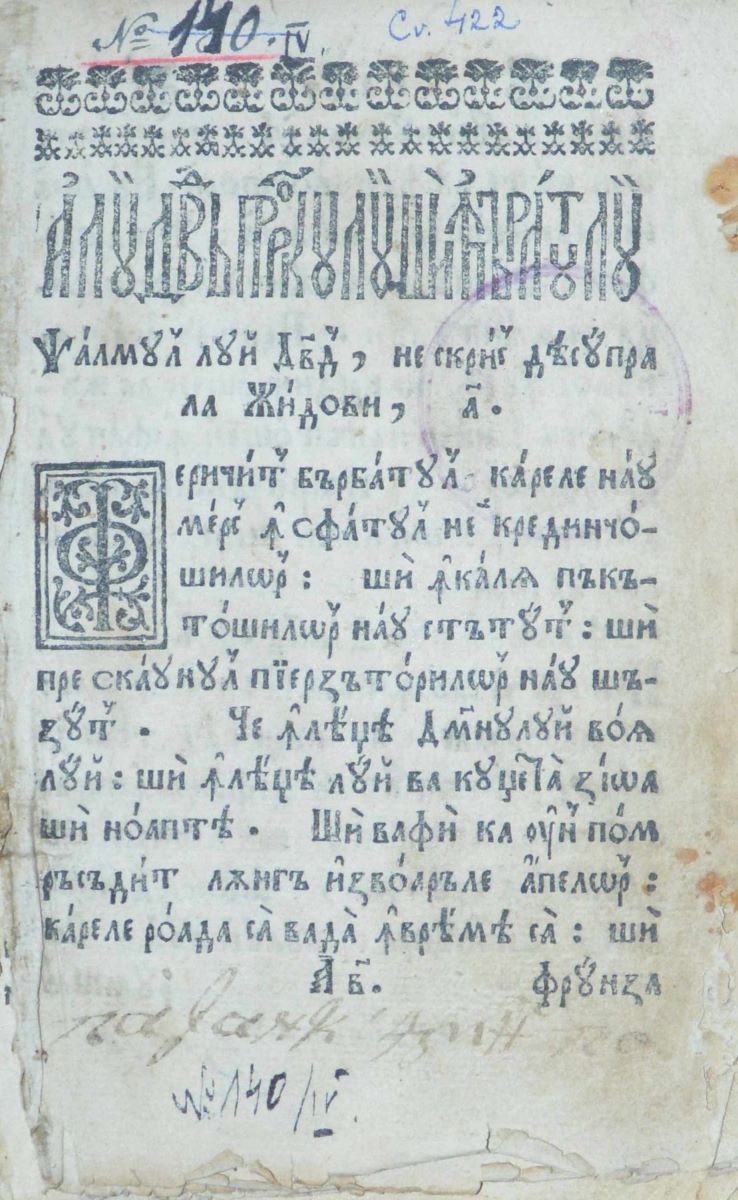 № 140. IV. Cv. 422
А луй Дв҃дъ пррⷪ҇кулуй шѝ ꙟпъра́тулуй
Ѱа́лмуⷧ҇ луй Дв҃дⷣ, нескри́сⷭ҇ дѣсу́пра
ла Жи́дови, а҃.
Феричи́тⷮ бърба́туⷧ҇ ка́реле на́у
ме́рсⷭ҇ ꙟсфа́туⷧ҇ некрединчо́-
шилѡрⷬ҇: шѝ ꙟка́лѧ пъкъ-
то́шилѡрⷬ҇ на́у стъту́тⷮ: шѝ
пре ска́унуⷧ҇ пїерзъто́рилѡрⷬ҇ на́у шъ-
зу́тⷮ. Че ꙟлѣ́џѣ Дм҃нулуй во́ѧ
лу́й: шѝ ꙟлѣ́џѣ лу́й ва куџета̀ зі́ѡа
шѝ но́аптѣ. Шѝ вафѝ ка оу҆́нⷩ по́м
ръсъди́т лѫнгъ и҆зво́аръле а҆́пелѡрⷬ҇:
ка́реле ро́ада са̀ вада̀ ꙟврѣ́мѣ са̀: шѝ
А в҃. фру́нза
№ 140/IV.